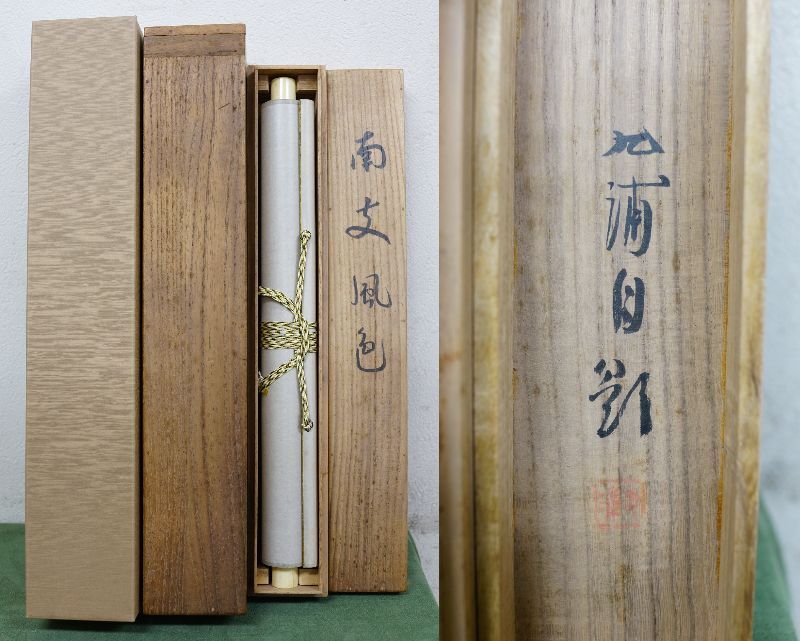 南支風色
九浦自題